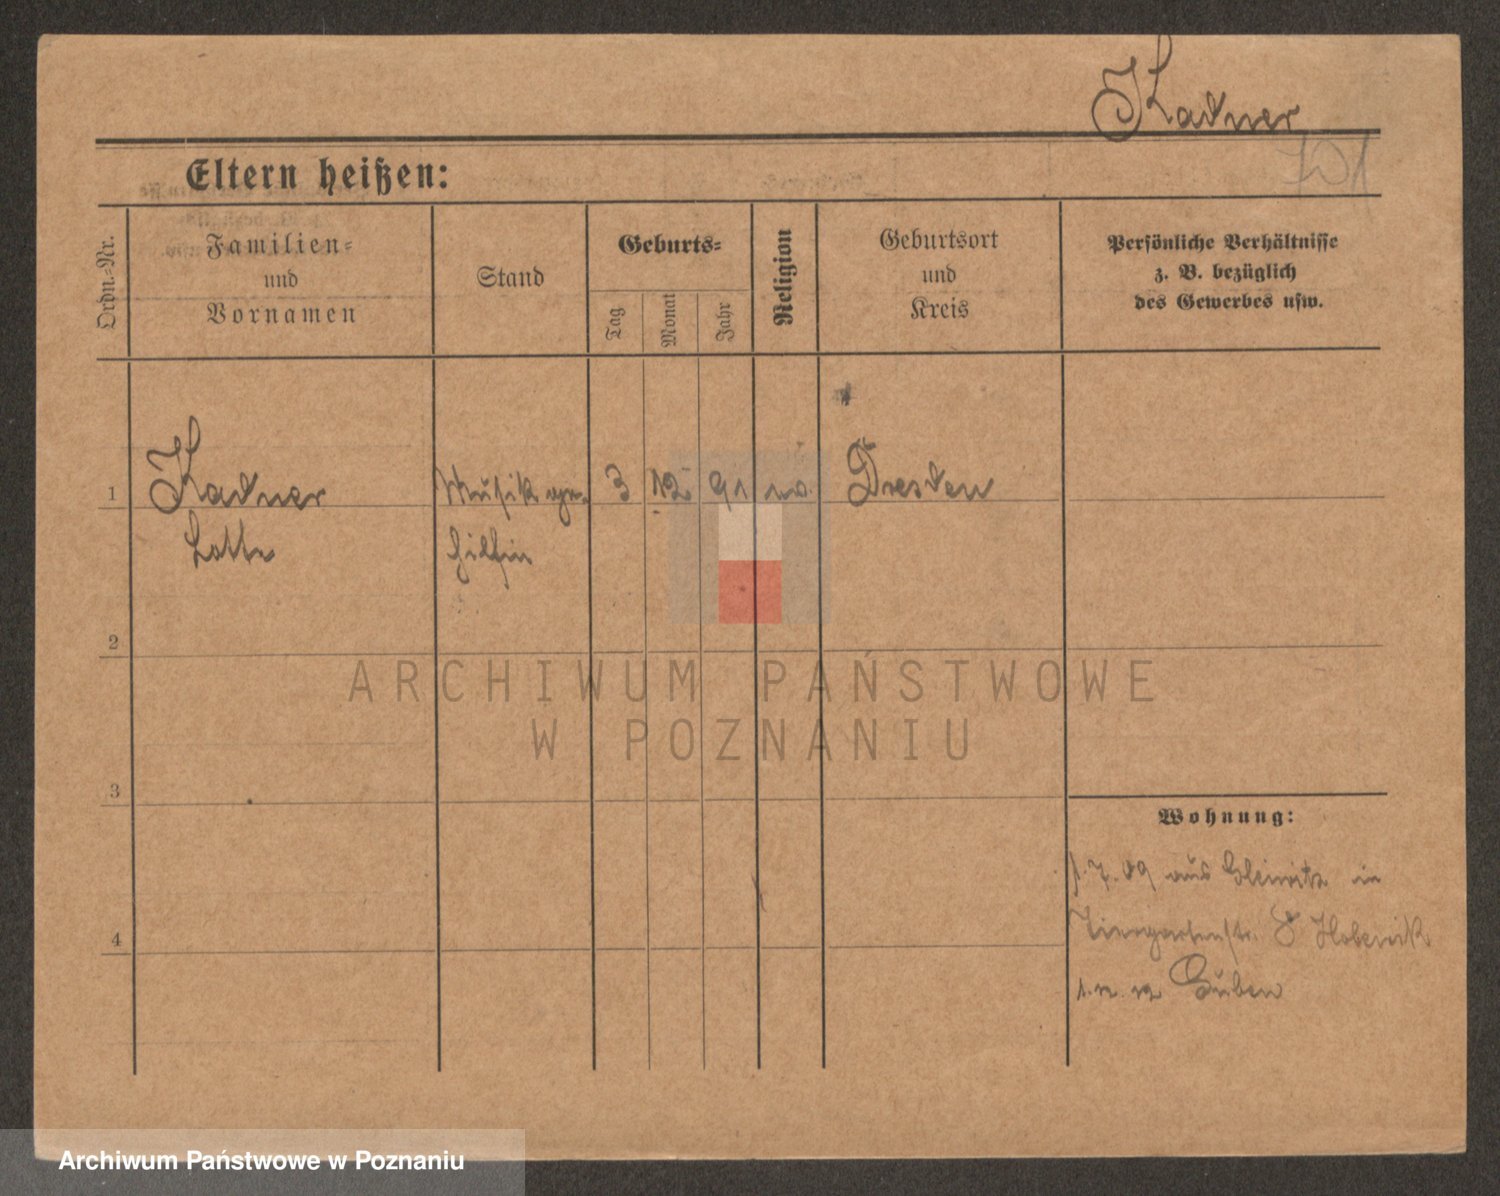 Kadner
Eltern heißen:
Ordn.-Nr.
Familien-
und
Vornamen
Stand
Geburts-
Tag
Monat
Jahr
Religion
Geburtsort
und
Kreis
Persönliche Verhältnisse
z. B. bezüglich
des Gewerbes usw.
1
Kadner
Musik ge-
3
12
91
Dresden
Lotte
hilfin
2
3
4
Wohnung:
1.7.09 aus Gleiwitz in
Tiergartenstr. 8
Guben
ARCHIWUM PAŃSTWOWE
W POZNANIU
Archiwum Państwowe w Poznaniu